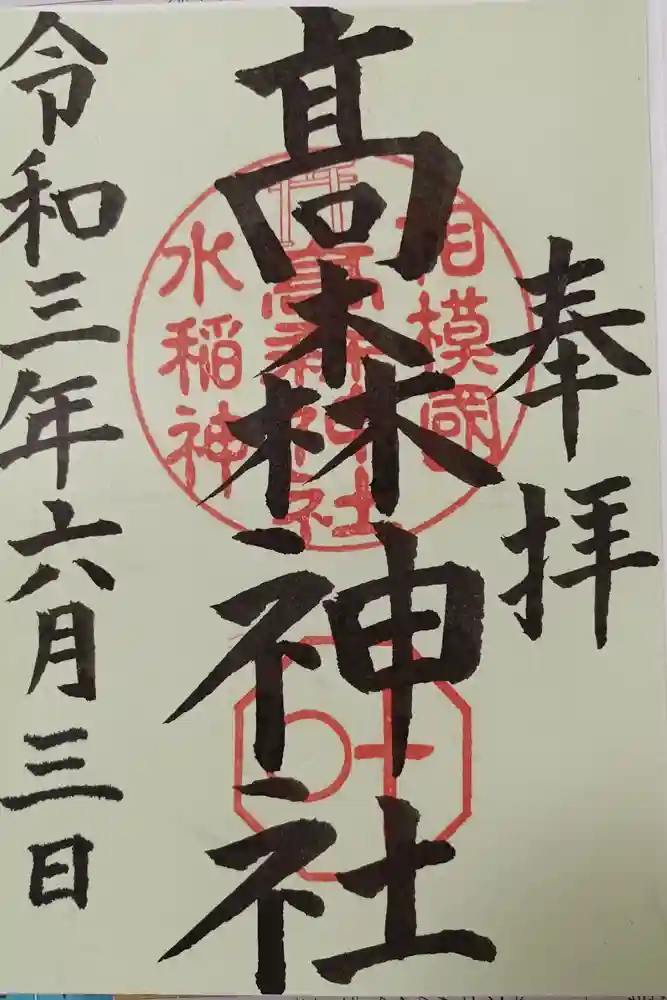 奉拝
相模國
高森神社
水稲神
髙森神社
令和三年六月三日